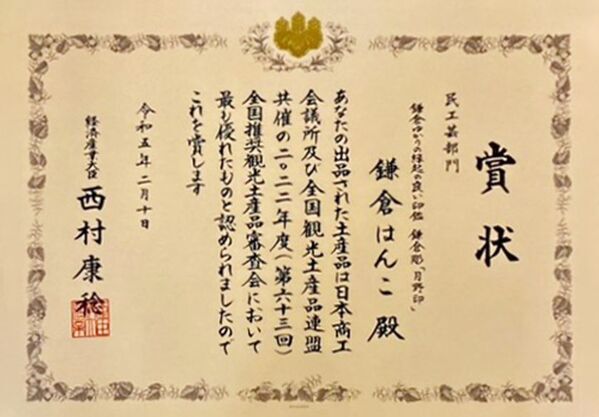 賞状
民工芸部門
鎌倉ゆかりの縁起の良い印鑑 鎌倉彫「月野印」
鎌倉はんこ 殿
あなたの出品された土産品は日本商工
会議所及び全国観光土産品連盟
共催の二〇二二年度(第六十三回)
全国推奨観光土産品審査会において
最も優れたものと認められましたので
これを賞します
令和五年二月十日
経済産業大臣
西村康稔